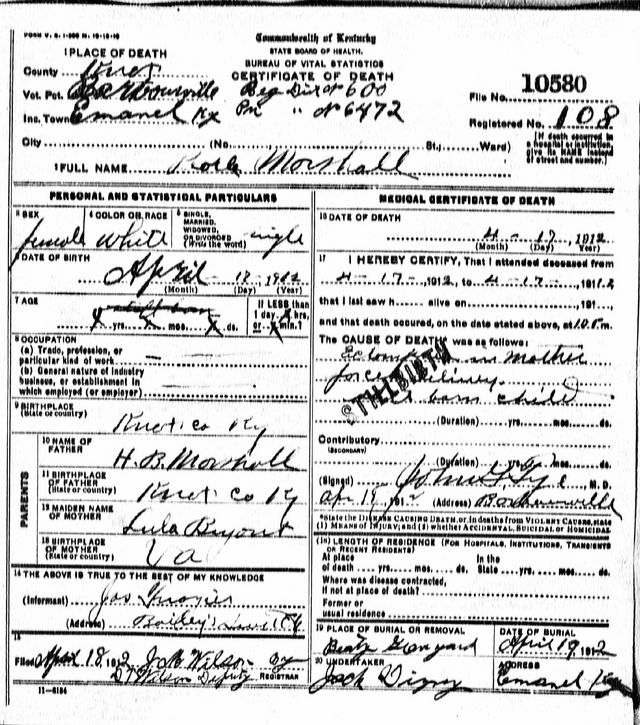 FORM V. S. 1-
Commonwealth of Kentucky
STATE BOARD OF HEALTH.
BUREAU OF VITAL STATISTICS
CERTIFICATE OF DEATH
1 PLACE OF DEATH
County Knox
Vot. Pct. Barbourville Reg Dist No 600
Inc. Town Emanel Ky Pri " No 6472
File No. 10580
Registered No. 108
City (No St.; Ward)
[If death occurred in a hospital or institution, give its NAME instead of street and number.]
1 FULL NAME Marshall
PERSONAL AND STATISTICAL PARTICULARS
3 SEX female
4 COLOR OR RACE White
5 SINGLE, MARRIED, WIDOWED, OR DIVORCED (Write the word) single
6 DATE OF BIRTH
April 17 1912
(Month) (Day) (Year)
7 AGE still born
X yrs. X mos. X ds.
If LESS than 1 day X hrs. or X min.?
8 OCCUPATION
(a) Trade, profession, or particular kind of work
(b) General nature of industry business, or establishment in which employed (or employer)
9 BIRTHPLACE
(State or country) Knox co Ky
PARENTS
10 NAME OF FATHER H. B. Marshall
11 BIRTHPLACE OF FATHER (State or country) Knox Co Ky
12 MAIDEN NAME OF MOTHER Lula
13 BIRTHPLACE OF MOTHER (State or country) Va
14 THE ABOVE IS TRUE TO THE BEST OF MY KNOWLEDGE
(Informant) Jas
(Address)
15
Filed April 18 1912 Wilson
Wilson Deputy REGISTRAR
11-6184
MEDICAL CERTIFICATE OF DEATH
16 DATE OF DEATH
4-17-, 1912
(Month) (Day) (Year)
17 I HEREBY CERTIFY, That I attended deceased from
4-17- 1912, to 4-17-, 1912
that I last saw h alive on , 191 ,
and that death occured, on the date stated above, at 10 P.m.
The CAUSE OF DEATH was as follows:
in mother
forced delivery.
born child
STILLBIRTH
(Duration) yrs. mos. ds.
Contributory
(SECONDARY)
(Duration) yrs. mos. ds.
(Signed) John M.D.
Apr 19 1912 (Address) Barbourville
*State the DISEASE CAUSING DEATH, or, in deaths from VIOLENT CAUSES, state
(1) MEANS OF INJURY; and (2) whether ACCIDENTAL, SUICIDAL or HOMICIDAL
(18) LENGTH OF RESIDENCE (FOR HOSPITALS, INSTITUTIONS, TRANSIENTS OR RECENT RESIDENTS)
At place of death yrs. mos. ds. In the State yrs. mos. ds.
Where was disease contracted, if not at place of death?
Former or usual residence
19 PLACE OF BURIAL OR REMOVAL
DATE OF BURIAL April 19 1912
20 UNDERTAKER Jack
ADDRESS Emanel Ky